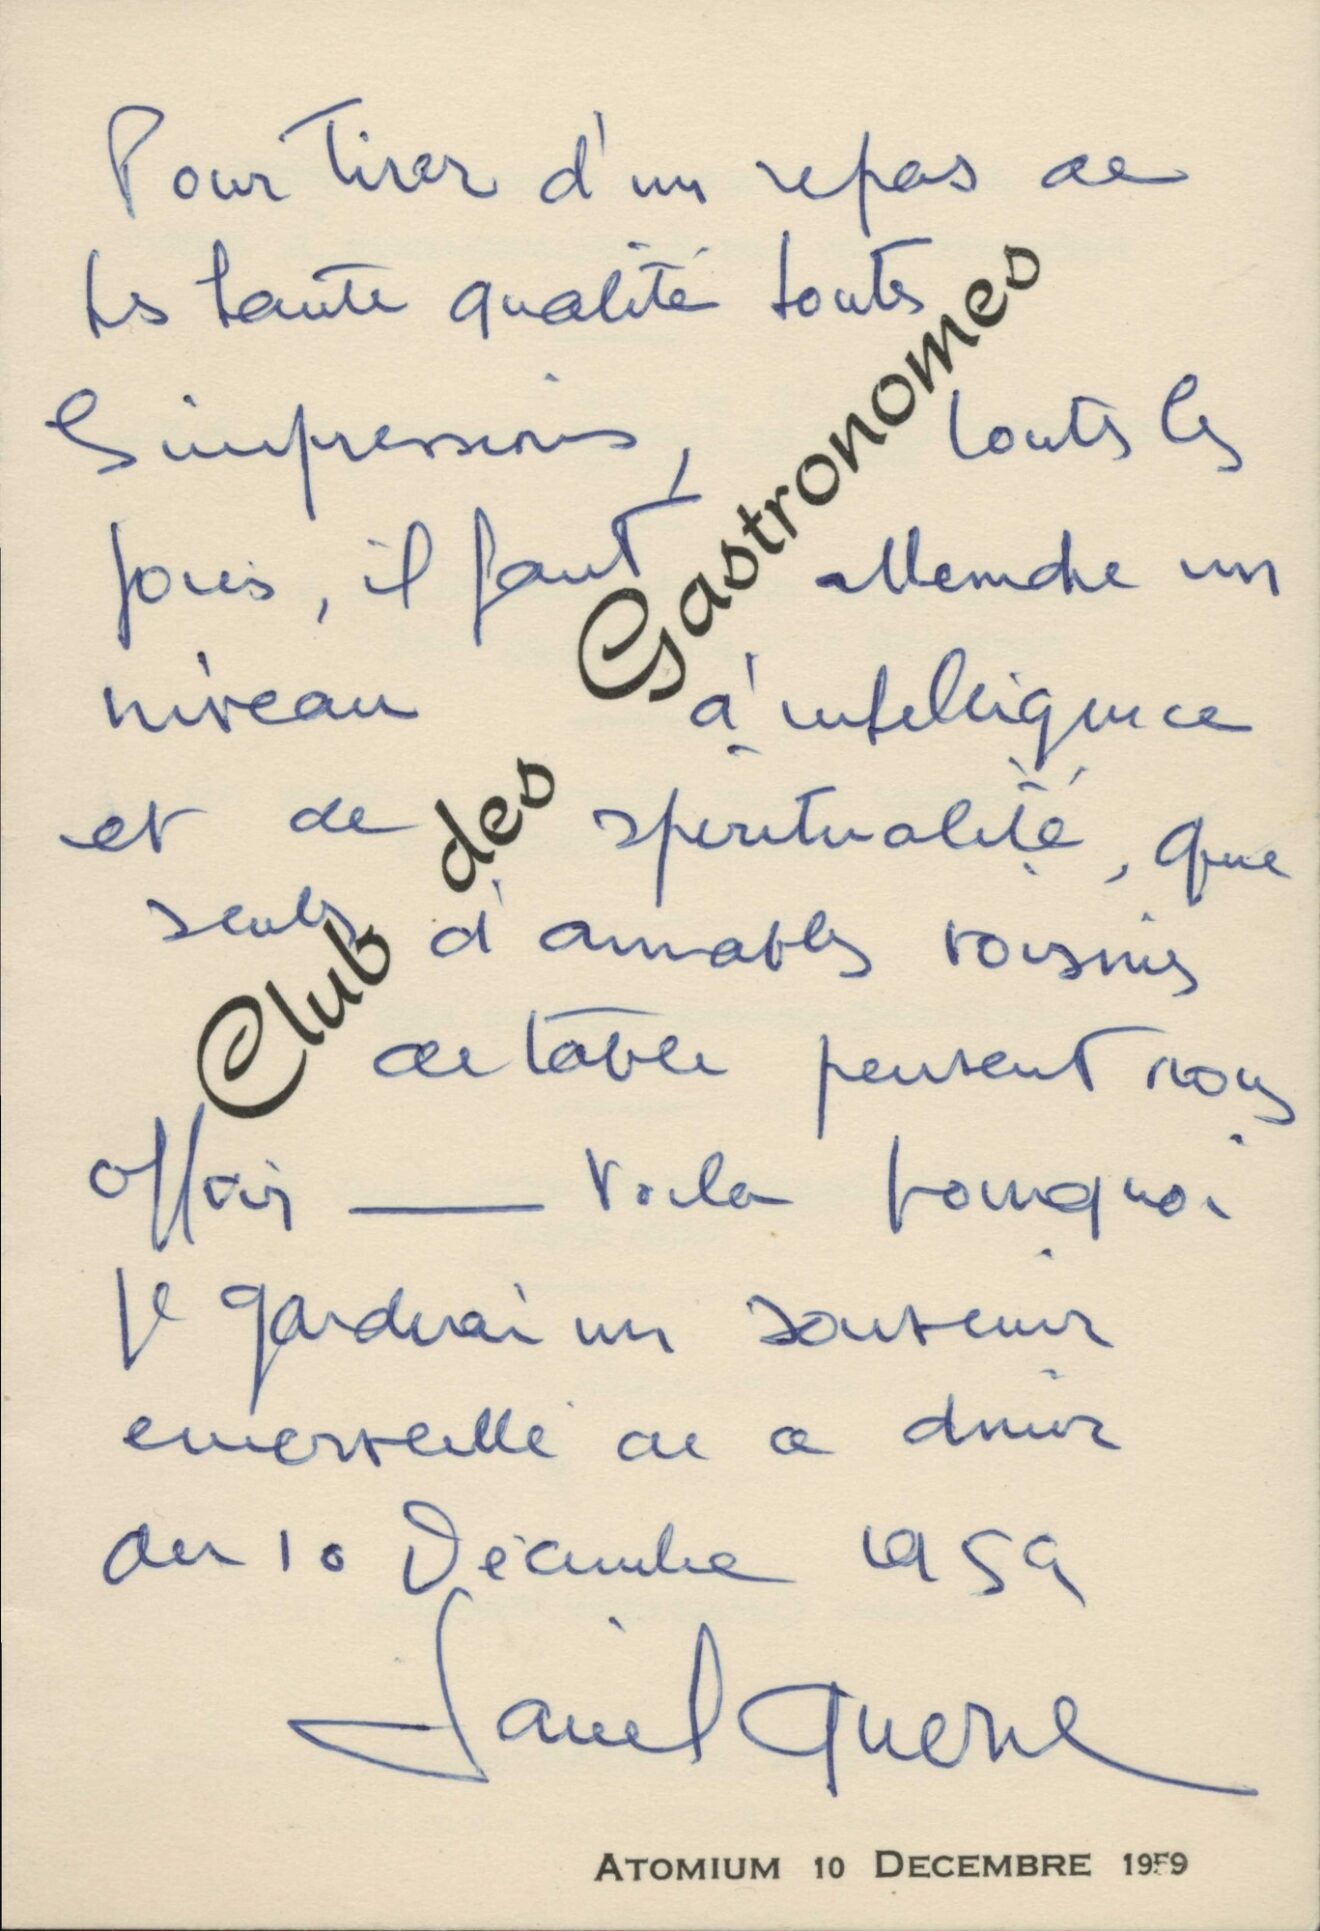 Pour tirer d'un repas de
très haute qualité toutes
les impressions, toutes les
joies, il faut atteindre un
niveau d'intelligence
et de spiritualité, que
seuls d'aimables voisins
de table peuvent nous
offrir — Voila pourquoi
je garderai un souvenir
emerveillé de ce diner
du 10 Décembre 1959
Daniel Querne
Club des Gastronomes
ATOMIUM 10 DECEMBRE 1959